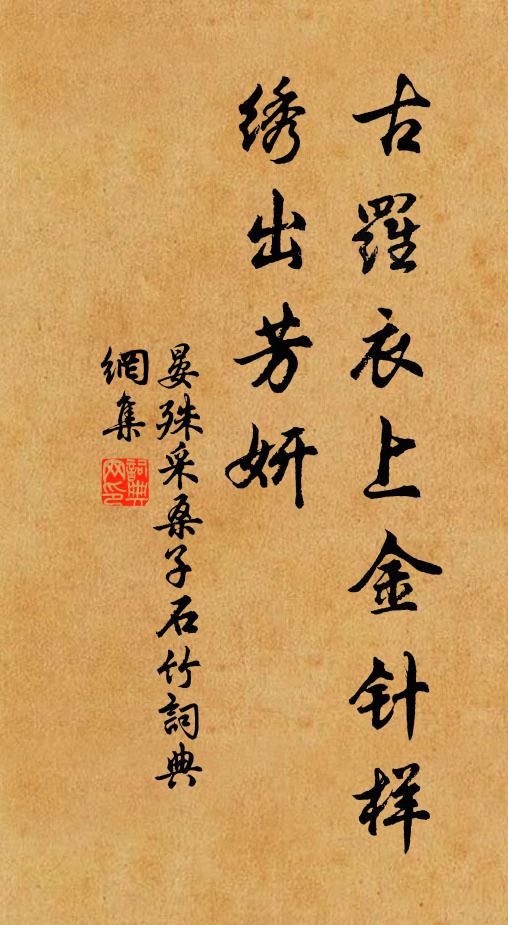 古羅衣上金针样
绣出芳妍
晏殊采桑子石竹詞典
網集
詞典
网印